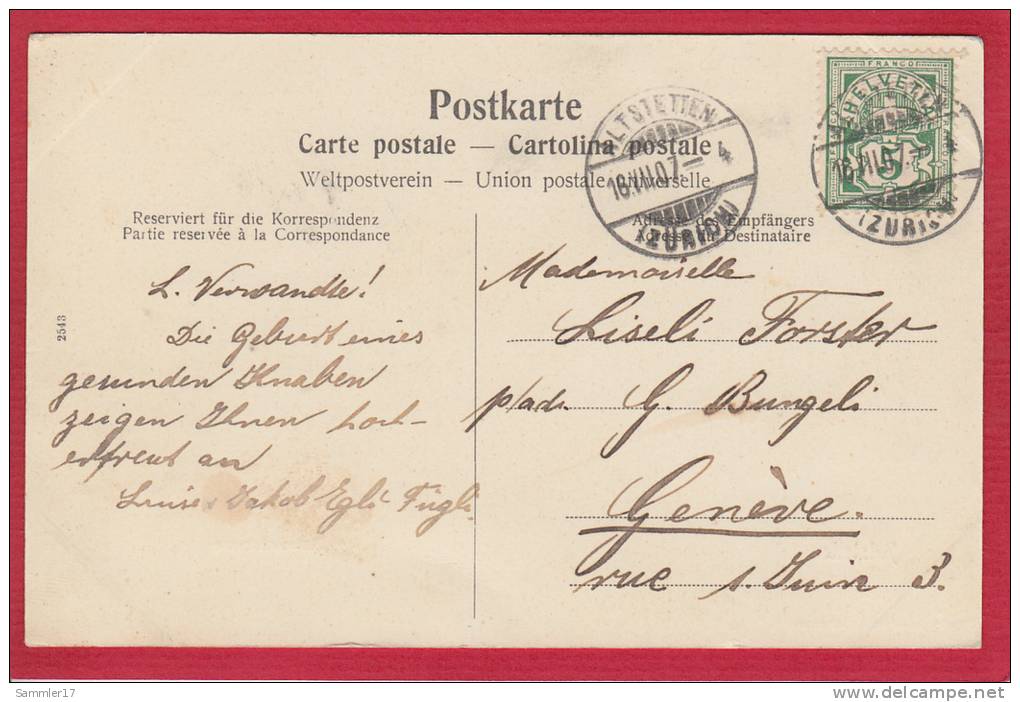 Postkarte
Carte postale — Cartolina postale
Weltpostverein — Union postale universelle
Reserviert für die Korrespondenz
Partie reservée à la Correspondance
Adresse des Empfängers
Adresse du Destinataire
ALTSTETTEN
16.VII.07.— 4
(ZÜRICH)
FRANCO
HELVETIA
5
ALTSTETTEN
16.VII.07.— 4
(ZÜRICH)
2543
L. Verwandte!
Die Geburt eines
gesunden Knaben
zeigen Ihnen hoch-
erfreut an
Luise & Jakob Egli Fügli
Mademoiselle
Liseli Forster
p/adr. G. Bungeli
Genève.
rue 1. Juin 3.
Sammler17
http://www.delcampe.net